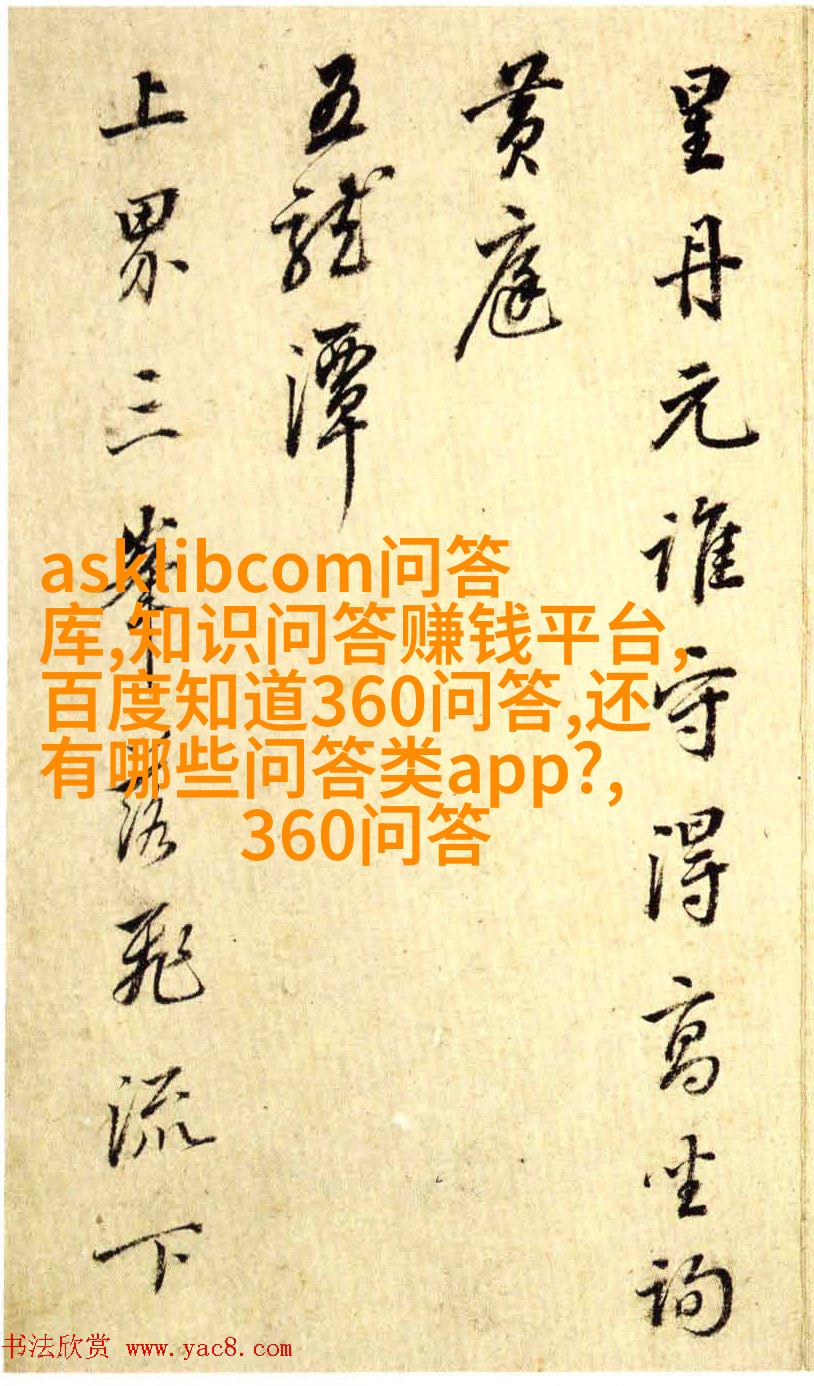 星丹元誰守得高坐詢
黃庭
五龍潭
上界三峯落飛流下
asklibcom问答
库,知识问答赚钱平台,
百度知道360问答,还
有哪些问答类app?,
360问答
书法欣赏 www.yac8.com